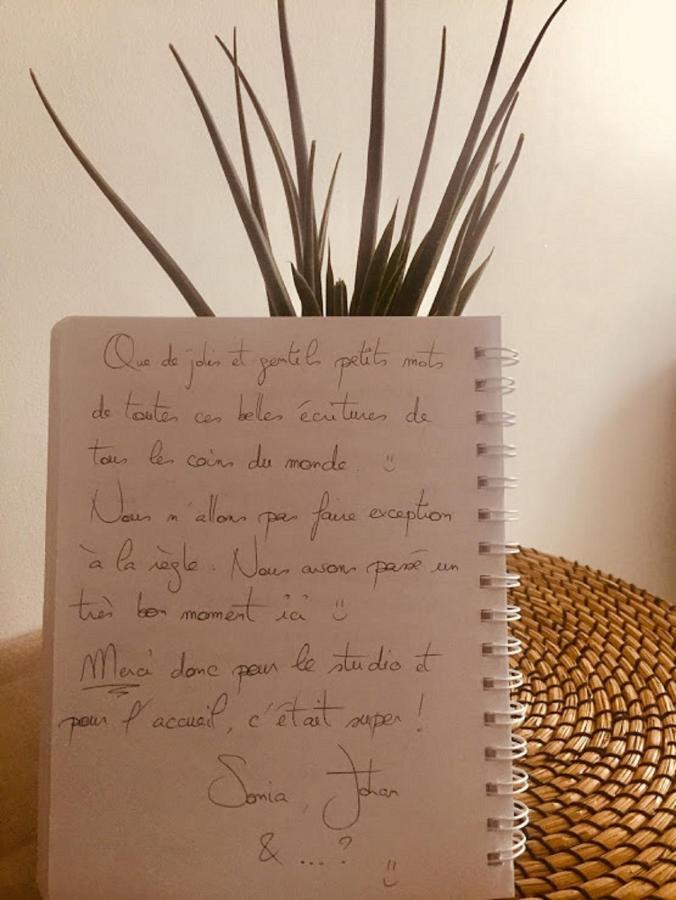 Que de jolis et gentils petits mots
de toutes ces belles écritures de
tous les coins du monde. :)
Nous n'allons pas faire exception
à la règle. Nous avons passé un
très bon moment ici :)
Merci donc pour le studio et
pour l'accueil, c'était super !
Sonia, Johan
& ... ?
:)